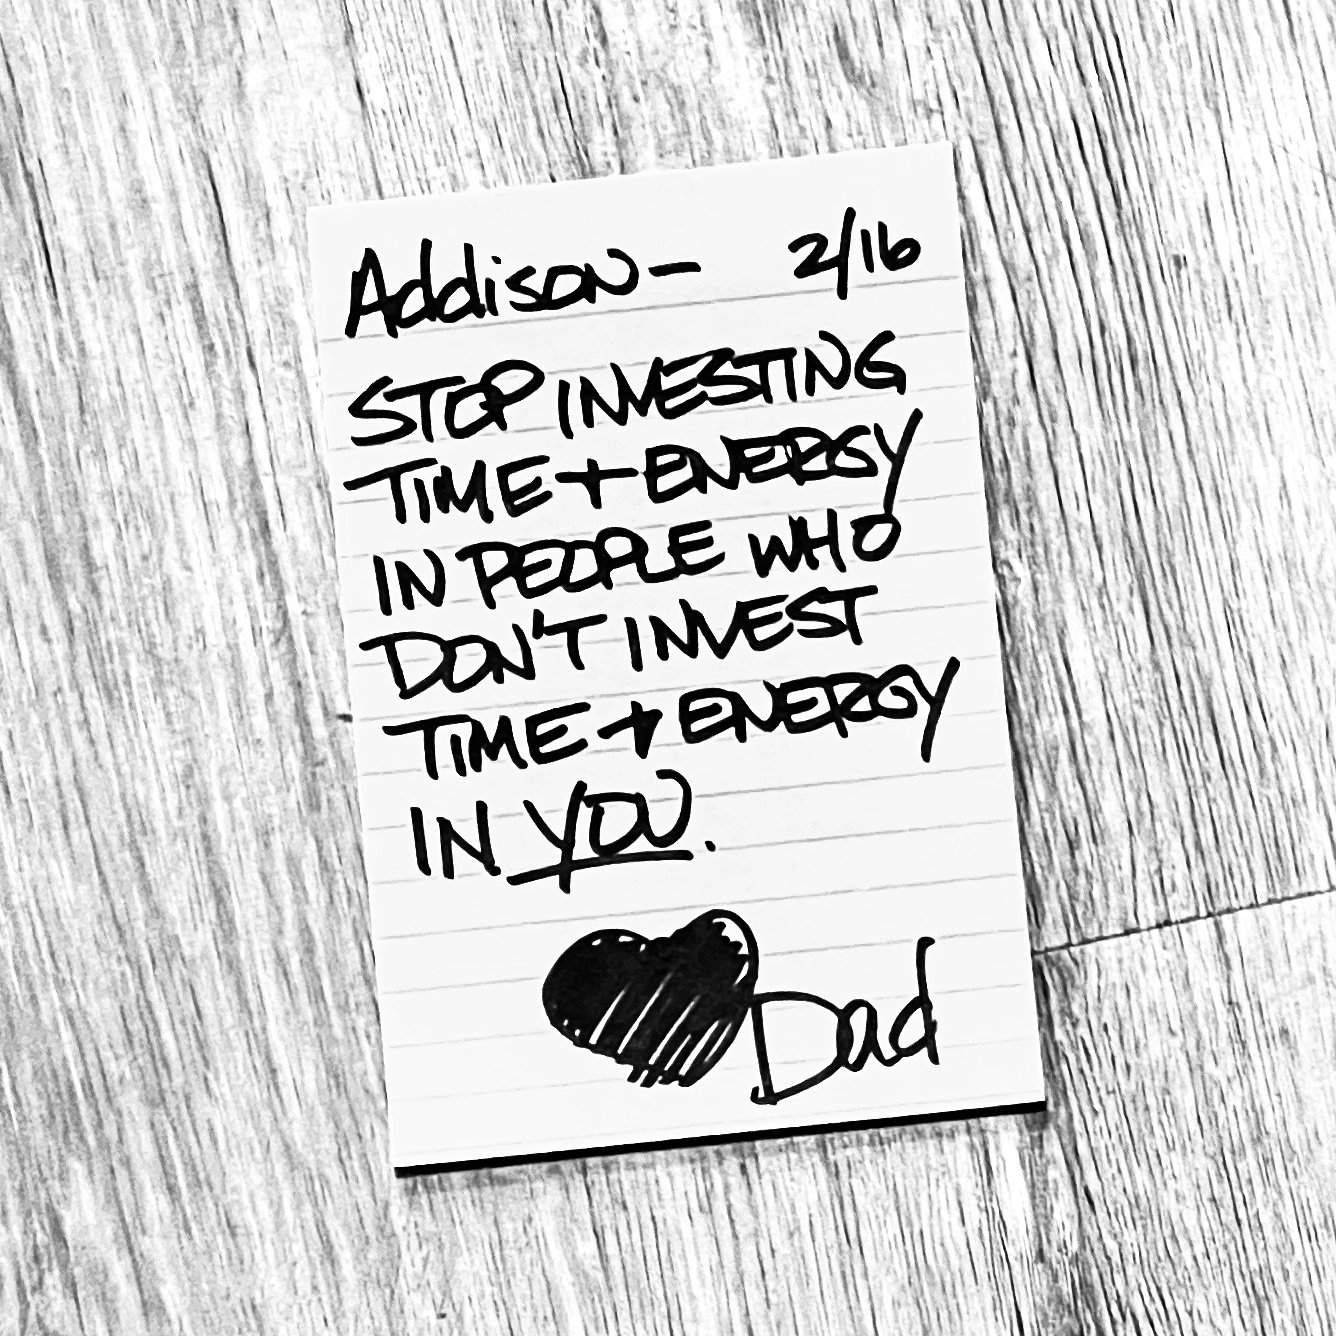 Addison— 2/16
STOP INVESTING
TIME + ENERGY
IN PEOPLE WHO
DON'T INVEST
TIME + ENERGY
IN YOU.
Dad